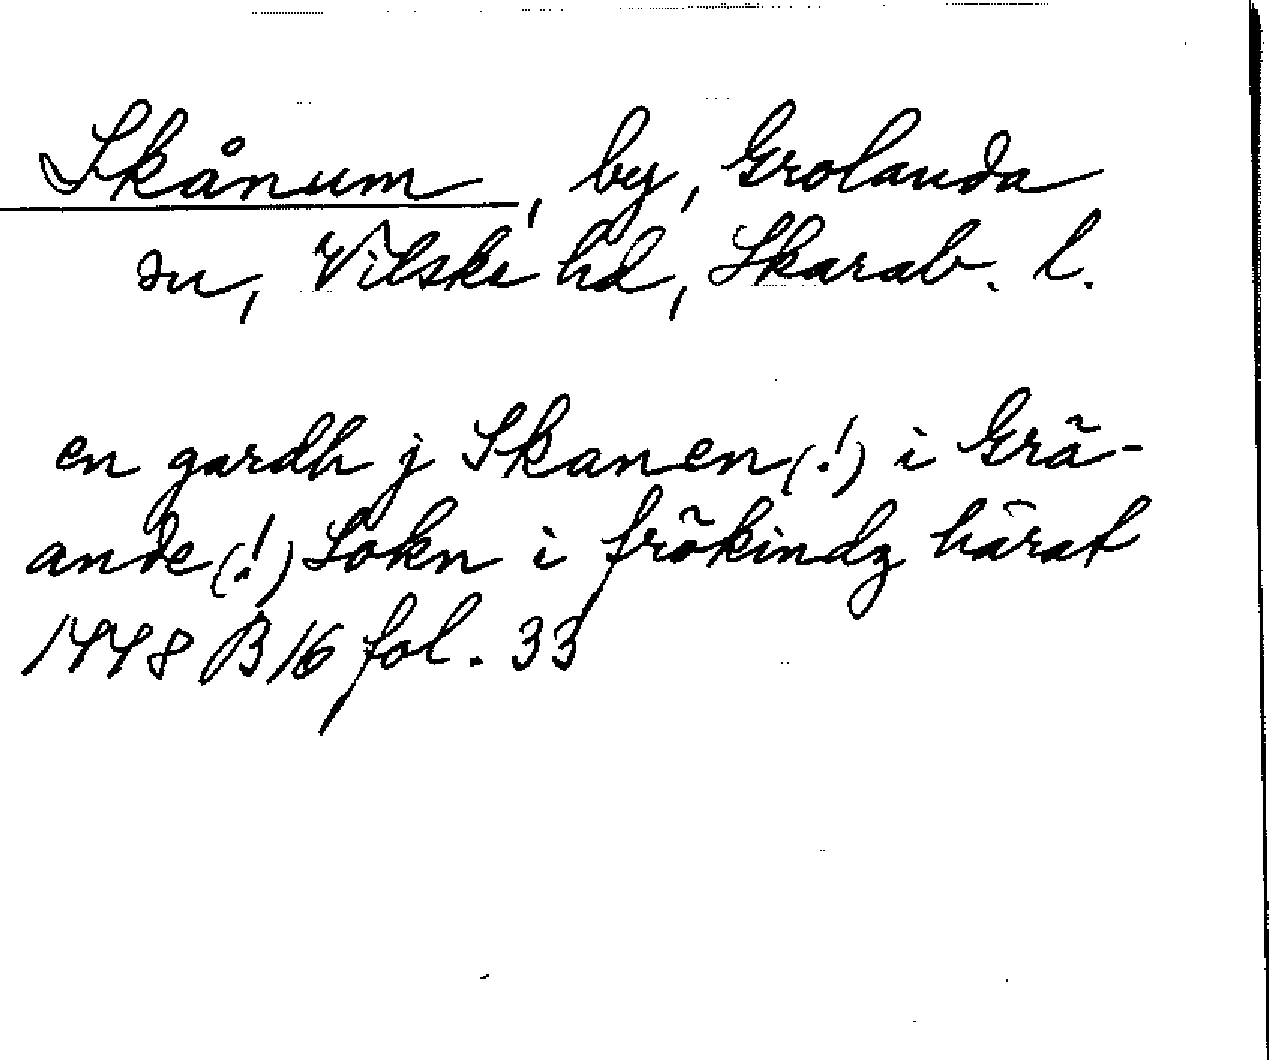 Skånum, by, Grolanda
sn, Vilske hd, Skarab. l.
en gardh j Skanen (!) i Grä-
ande (!) Sokn i frökindz härat
1448 B 16 fol. 33